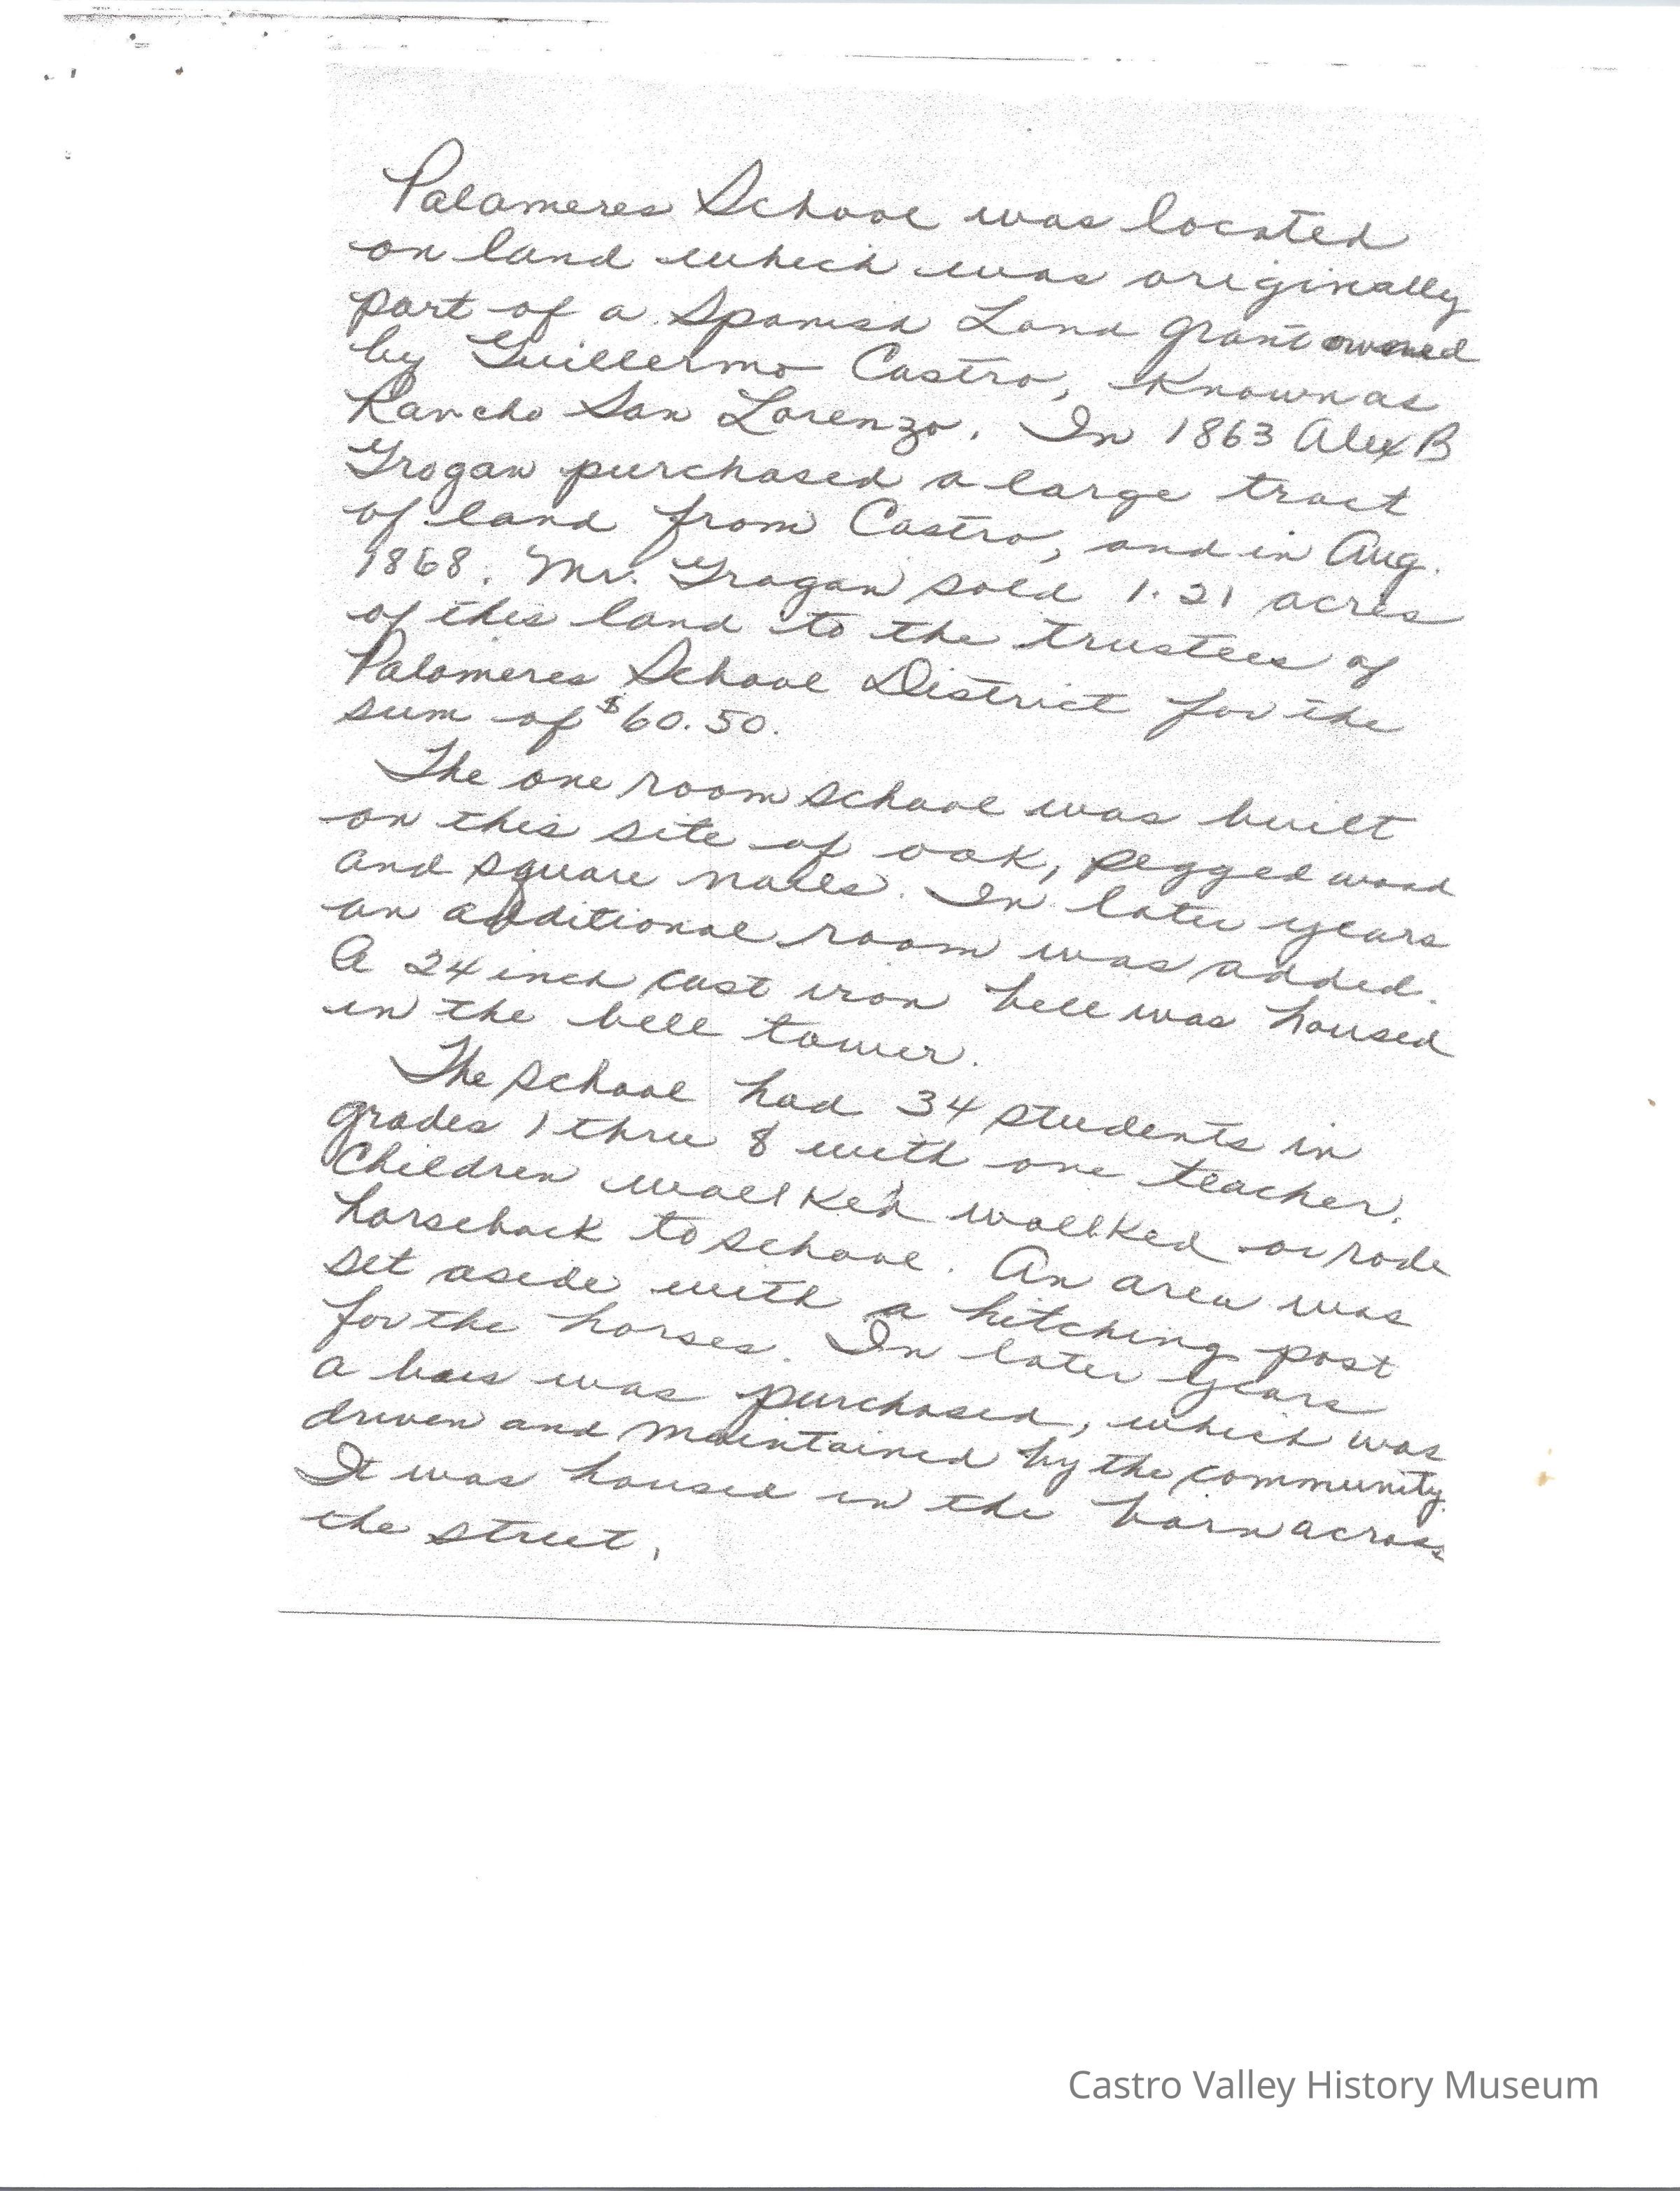 Palomeres School was located
on land which was originally
part of a Spanish Land grant owned
by Guillermo Castro, Known as
Rancho San Lorenzo. In 1863 Alex B
Grogan purchased a large tract
of land from Castro, and in Aug.
1868. Mr. Grogan sold 1.21 acres
of this land to the trustees of
Palomeres School District for the
sum of $60.50.
The one room school was built
on this site of oak, pegged wood
and square nails. In later years
an additional room was added.
A 24 inch cast iron bell was housed
in the bell tower.
The school had 34 students in
grades 1 thru 8 with one teacher.
Children wallked wallked or rode
horseback to school. An area was
set aside with a hitching post
for the horses. In later years
a bus was purchased, which was
driven and maintained by the community.
It was housed in the barn across
the street.
Castro Valley History Museum